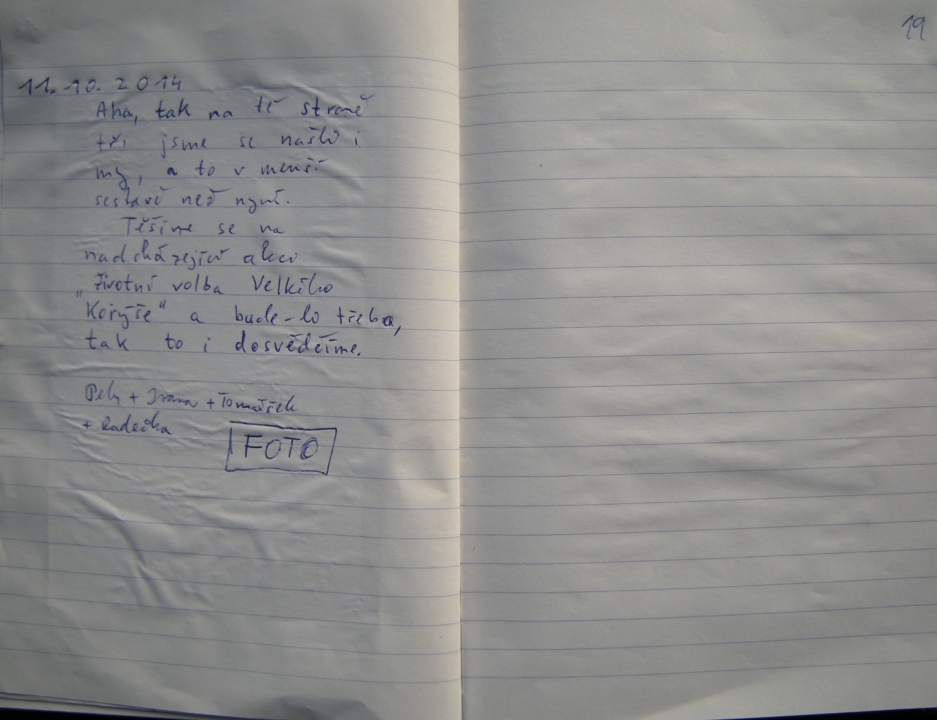 11. 10. 2014
Aha, tak na té straně
tři jsme se našli i
my, a to v menší
sestavě než nyní.
Těšíme se na
nadcházející akci
„Životní volba Velkého
Korýše“ a bude-li třeba,
tak to i dosvědčíme.
+ Ivana + Tomášek
+ Radečka
FOTO
19